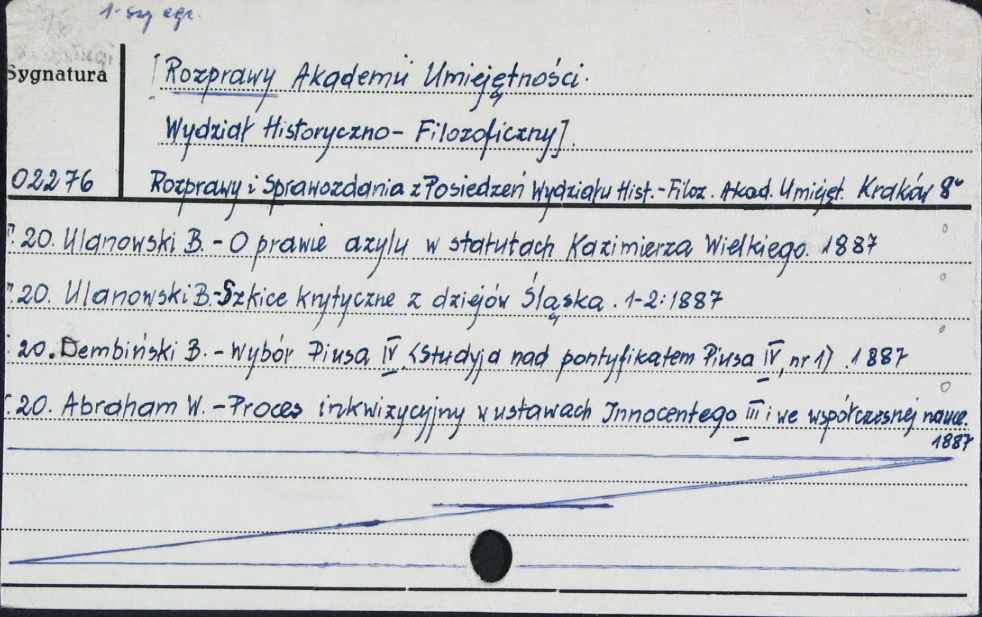 1-szy egz.
Sygnatura
[Rozprawy Akademii Umiejętności.
Wydział Historyczno-Filozoficzny].
02276
Rozprawy i Sprawozdania z Posiedzeń Wydziału Hist.-Filoz. Akad. Umięjęt. Kraków 8°
T. 20. Ulanowski B. - O prawie azylu w statutach Kazimierza Wielkiego. 1887
T. 20. Ulanowski B. - Szkice krytyczne z dziejów Śląska. 1-2: 1887
20. Dembiński B. - Wybór Piusa IV. (Studyja nad pontyfikatem Piusa IV, nr 1). 1887
T. 20. Abraham W. - Proces inkwizycyjny w ustawach Innocentego III i we współczesnej nauce.
1887